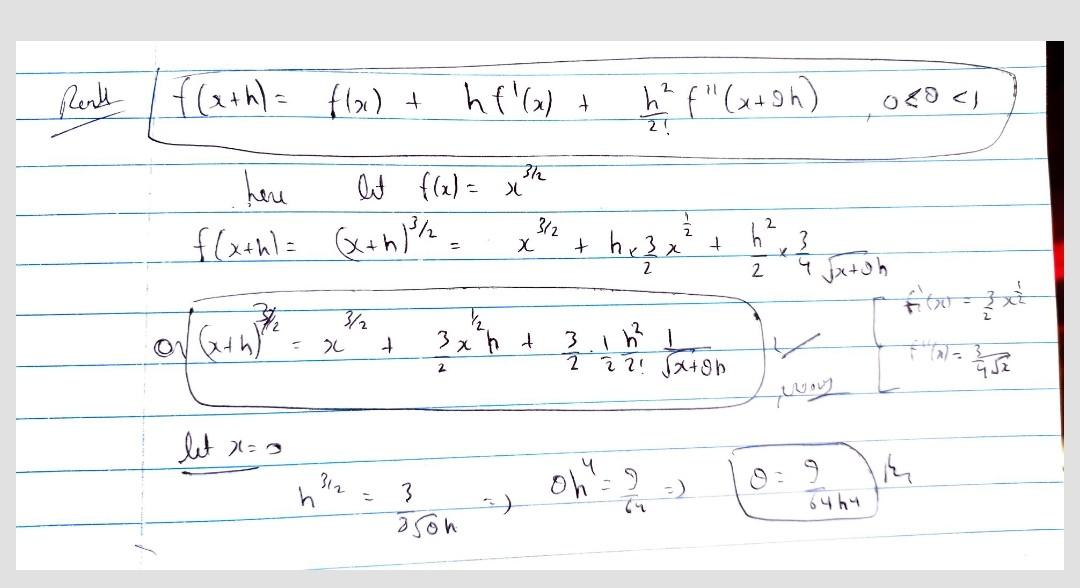 Result f(x+h) = f(x) + hf'(x) + h²/2! f''(x+θh) , 0<θ<1
here let f(x) = x^3/2
f(x+h) = (x+h)^3/2 = x^3/2 + h×3/2 x^1/2 + h²/2 × 3/4√x+θh
f'(x) = 3/2 x^1/2
or (x+h)^3/2 = x^3/2 + 3/2 x^1/2 h + 3/2 · 1/2 h²/2! 1/√x+θh
f''(x) = 3/4√x
let x=0
h^3/2 = 3/8√θh => θh⁴ = 9/64 => θ = 9/64h⁴